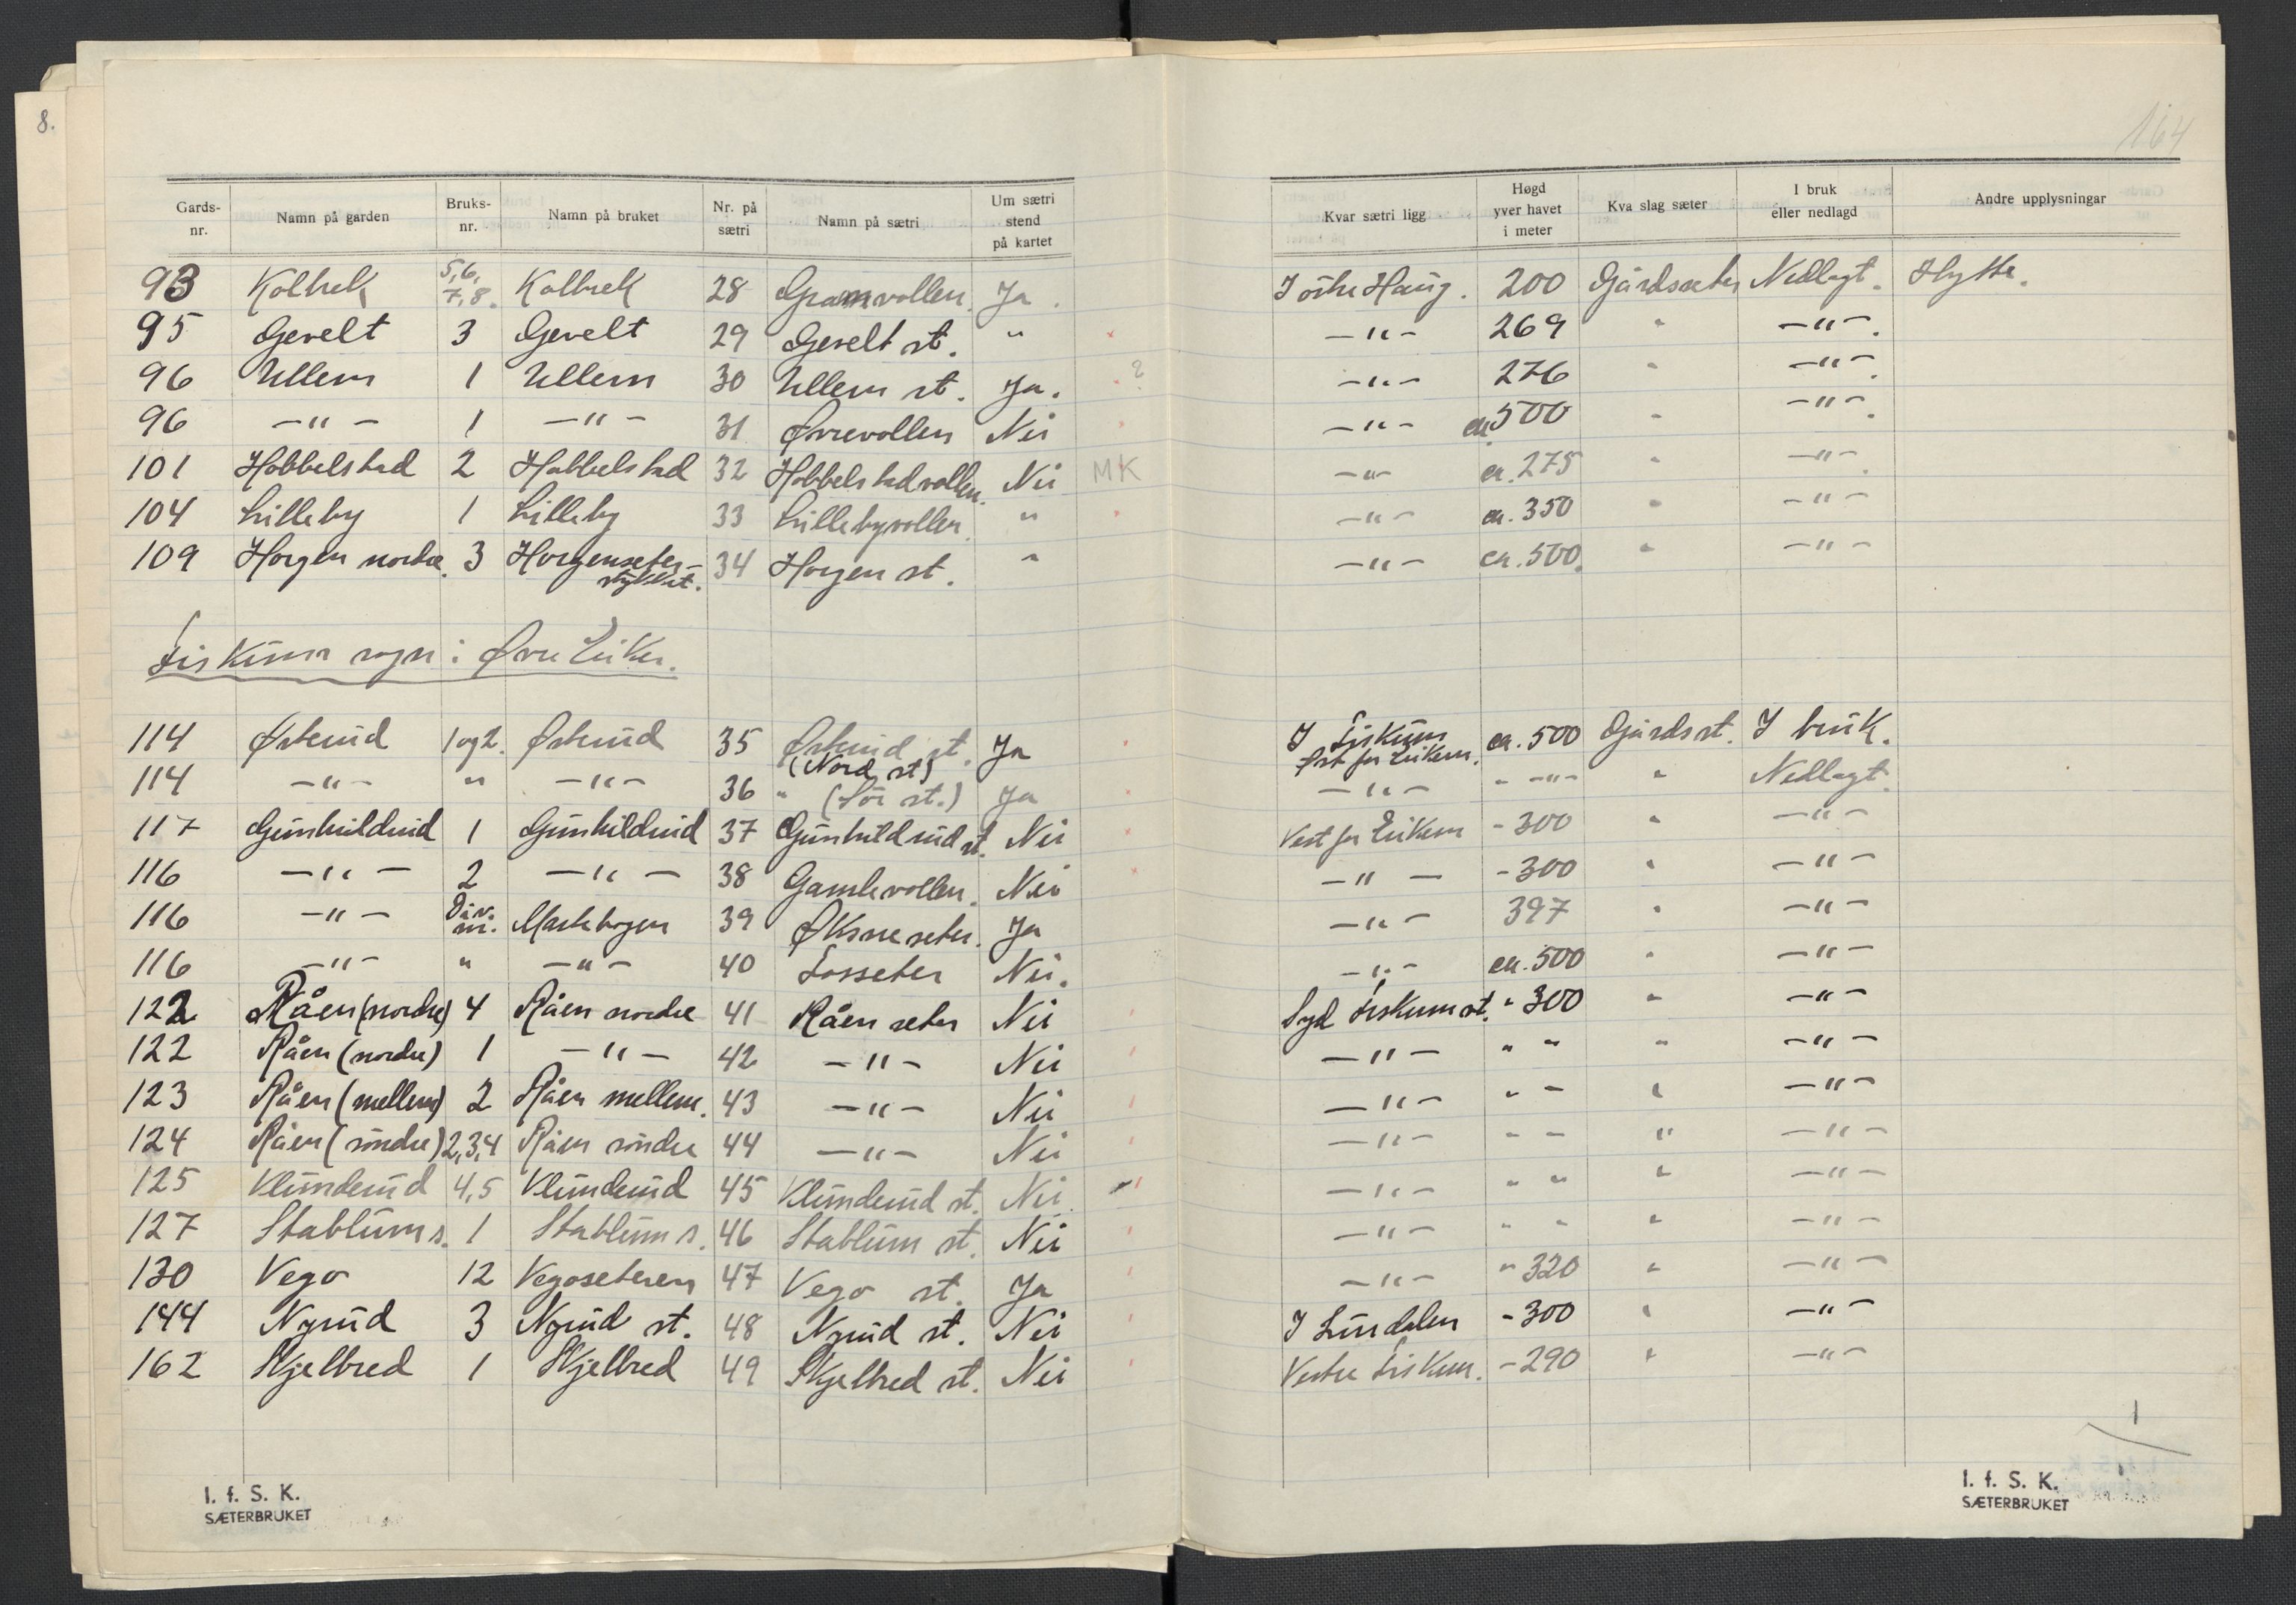 8.
164
Gards-nr. | Namn på garden | Bruks-nr. | Namn på bruket | Nr. på sætri | Namn på sætri | Um sætri stend på kartet | Kvar sætri ligg | Høgd yver havet i meter | Kva slag sæter | I bruk eller nedlagd | Andre upplysningar
93 Kolbrek 5,6,7,8. Kolbrek 28 Gramvollen. Ja. I østre Haug. 200 Gårdsseter Nedlagt. Hytte.
95 Gevelt 3 Gevelt 29 Gevelt st. " —"— 269 " —"—.
96 Ullern 1 Ullern 30 Ullern st. Ja. ? —"— 276 " —"—.
96 —"— 1 —"— 31 Øvrevollen Nei —"— ca 500 " —"—.
101 Hobbelstad 2 Hobbelstad 32 Hobbelstadvollen. Nei MK —"— ca. 275 " —"—.
104 Lilleby 1 Lilleby 33 Lillebyvollen. " —"— ca. 350 " —"—
109 Horgen nordre. 3 Horgenseter-stykket. 34 Horgen st. " —"— ca. 500. " —"—
Fiskum sogn i Øvre Eiker.
114 Østerud 1 og 2. Østerud 35 Østerud st. (Nord st) Ja I Fiskum Øst for Eikern. ca. 500 Gårdsst. I bruk.
114 —"— " —"— 36 " (Sør st.) Ja —"— " —"— " Nedlagt.
117 Gunhildrud 1 Gunhildrud 37 Gunhildrud st. Nei Vest for Eikern - 300 " —"—
116 —"— 2 —"— 38 Gamlevollen. Nei —"— - 300 " —"—
116 —"— Div. nr. 39 Øksneseter. Ja —"— 397 " —"—
116 —"— " —"— 40 Losseter Nei. —"— ca. 500 " —"—
122 Råen (nordre) 4 Råen nordre 41 Råen seter Nei Syd Fiskum st. " 300 " —"—
122 Råen (nordre) 1 —"— 42 —"— Nei —"— " " " —"—
123 Råen (mellem) 2 Råen mellem. 43 —"— Nei —"— " — " —"—
124 Råen (søndre) 2,3,4 Råen søndre 44 —"— Nei —"— — — " —"—
125 Klunderud 4,5 Klunderud 45 Klunderud st. Nei. —"— " " " —"—
127 Stablum s. 1 Stablum s. 46 Stablum st. Nei —"— " " " —"—
130 Vego 12 Vegoseteren 47 Vego st. Ja —"— " 320 " —"—
144 Nyrud 3 Nyrud st. 48 Nyrud st. Nei I Lundalen - 300 " —"—
162 Skjelbred 1 Skjelbred 49 Skjelbred st. Nei Vestre Fiskum. - 290 " —"—
1
I. f. S. K.
SÆTERBRUKET
I. f. S. K.
SÆTERBRUKET